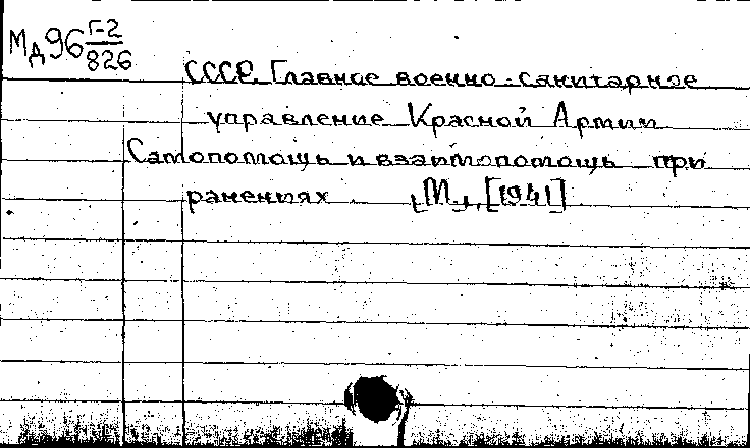 Мд96 Г-2/826
СССР. Главное военно-санитарное
управление Красной Армии
Самопомощь и взаимопомощь при
ранениях. [М.], [1941]